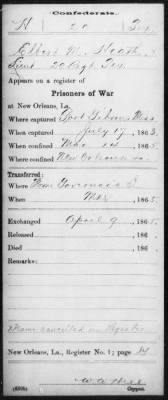 Confederate.
H 20 Tex
Elbert M. Heath
Lieut. 20 Regt. Tex
Appears on a register of
Prisoners of War
at New Orleans, La.
Where captured Port Gibson Miss.
When captured July 17, 1863.
When confined Mar 14, 1865.
Where confined New Orleans La.
Transferred:
Where
When Mar, 1865.
Exchanged April 9, 1865.
Released , 186 .
Died , 186 .
Remarks:
Name cancelled on Register
New Orleans, La., Register No. 1; page 84
Copyist.